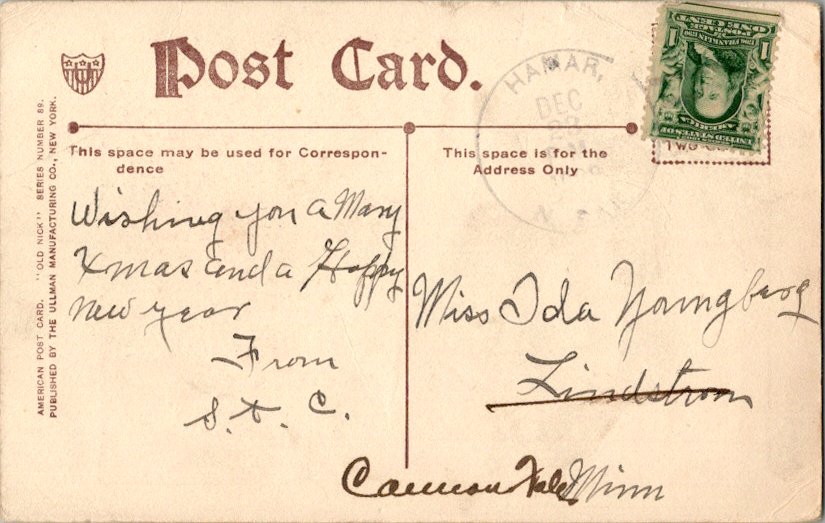 Post Card.
This space may be used for Correspon-
dence
This space is for the
Address Only
HAMAR,
DEC
23
N. DAK.
ONE CENT
POSTAGE
1 1
1706 FRANKLIN 1790
UNITED STATES OF
AMERICA
TWO CENTS
Wishing you a Mary
Xmas and a Happy
New year
From
S. T. C.
Miss Ida Youngberg
Lindstrom
Cannon Falls Minn
AMERICAN POST CARD. "OLD NICK" SERIES NUMBER 89.
PUBLISHED BY THE ULLMAN MANUFACTURING CO., NEW YORK.